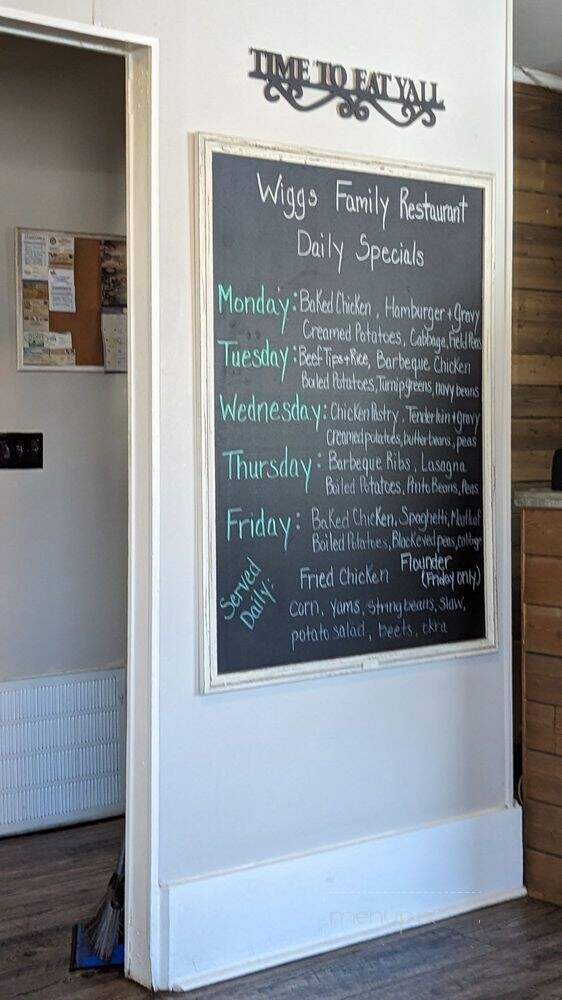 TIME TO EAT YALL
Wiggs Family Restaurant
Daily Specials
Monday: Baked Chicken, Hamburger + Gravy
Creamed Potatoes, Cabbage, Field Peas
Tuesday: Beef Tips + Rice, Barbeque Chicken
Boiled Potatoes, Turnip greens, navy beans
Wednesday: Chicken Pastry, Tenderloin + gravy
Creamed potatoes, butter beans, peas
Thursday: Barbeque Ribs, Lasagna
Boiled Potatoes, Pinto Beans, Peas
Friday: Baked Chicken, Spaghetti, Meatloaf
Boiled Potatoes, Blackeyed peas, cabbage
Served Daily: Fried Chicken Flounder
(Friday only)
corn, yams, string beans, slaw,
potato salad, beets, okra